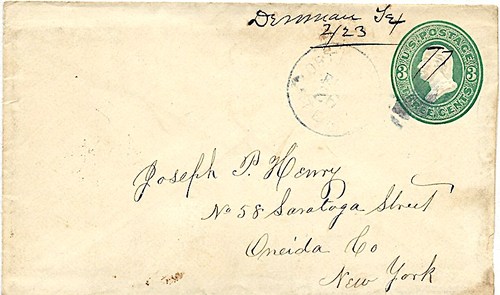 Tex
2/23
U.S. POSTAGE
3 3
THREE CENTS
Joseph P. Henry
No 58 Saratoga Street
Oneida Co
New York